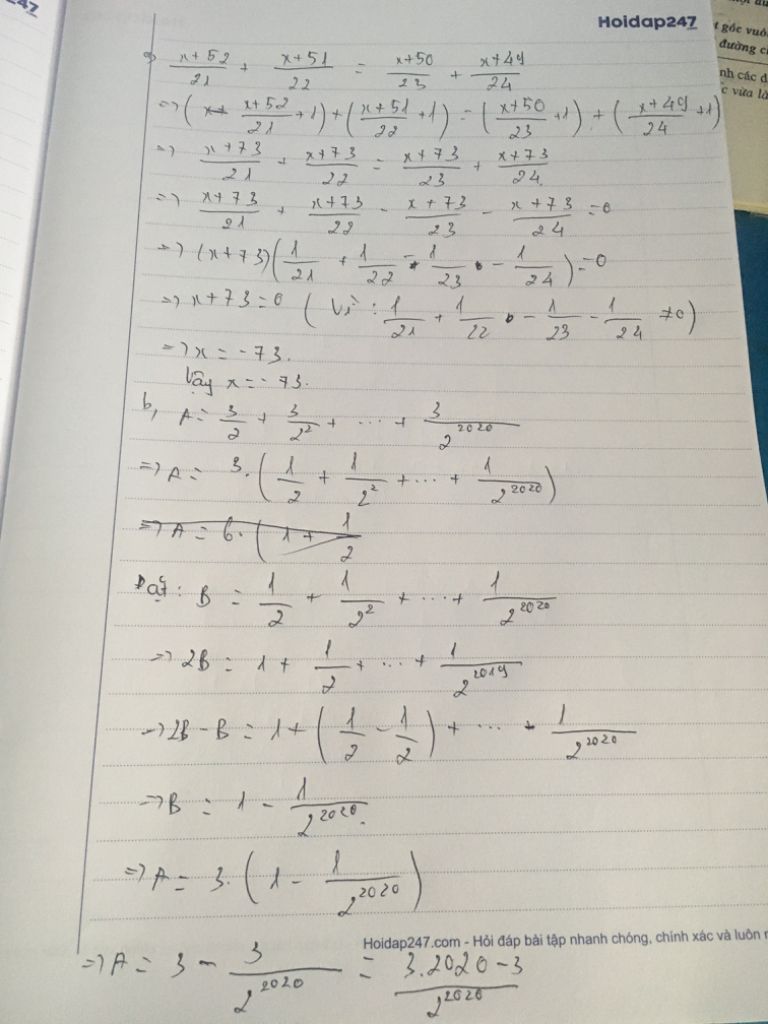 Hoidap247
a, \frac{x+52}{21} + \frac{x+51}{22} = \frac{x+50}{23} + \frac{x+49}{24}
=> (\frac{x+52}{21} + 1) + (\frac{x+51}{22} + 1) = (\frac{x+50}{23} + 1) + (\frac{x+49}{24} + 1)
=> \frac{x+73}{21} + \frac{x+73}{22} = \frac{x+73}{23} + \frac{x+73}{24}
=> \frac{x+73}{21} + \frac{x+73}{22} - \frac{x+73}{23} - \frac{x+73}{24} = 0
=> (x+73)(\frac{1}{21} + \frac{1}{22} - \frac{1}{23} - \frac{1}{24}) = 0
=> x+73 = 0 (Vì: \frac{1}{21} + \frac{1}{22} - \frac{1}{23} - \frac{1}{24} ≠ 0)
=> x = -73.
Vậy x = -73.
b, A = \frac{3}{2} + \frac{3}{2^2} + ... + \frac{3}{2^{2020}}
=> A = 3.(\frac{1}{2} + \frac{1}{2^2} + ... + \frac{1}{2^{2020}})
=> A = 6.(1 + \frac{1}{2}
Đặt: B = \frac{1}{2} + \frac{1}{2^2} + ... + \frac{1}{2^{2020}}
=> 2B = 1 + \frac{1}{2} + ... + \frac{1}{2^{2019}}
=> 2B - B = 1 + (\frac{1}{2} - \frac{1}{2}) + ... - \frac{1}{2^{2020}}
=> B = 1 - \frac{1}{2^{2020}}.
=> A = 3.(1 - \frac{1}{2^{2020}})
Hoidap247.com - Hỏi đáp bài tập nhanh chóng, chính xác và luôn
=> A = 3 - \frac{3}{2^{2020}} = \frac{3.2020-3}{2^{2020}}
47
góc vuô
đường c
nh các d
c vừa là